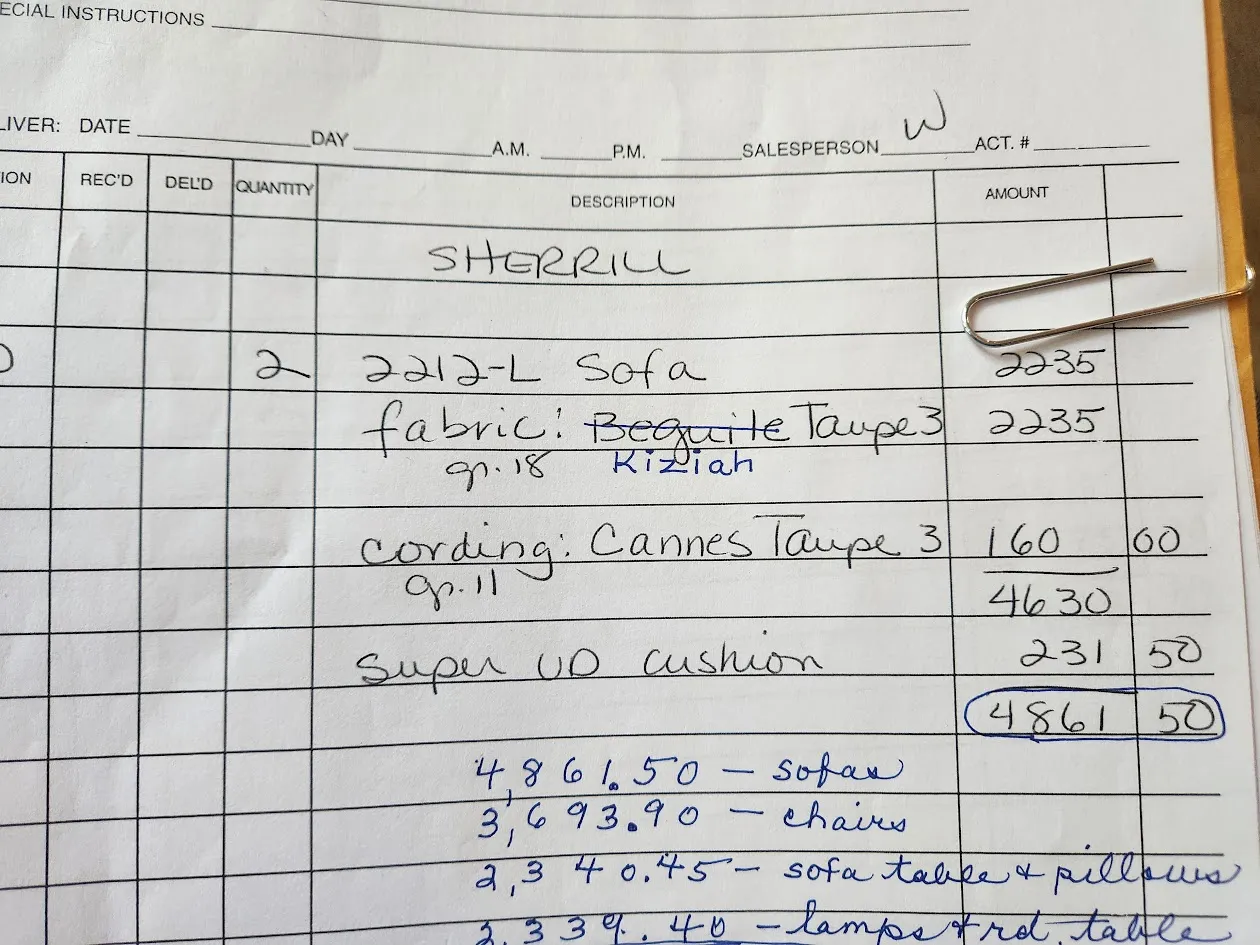 ECIAL INSTRUCTIONS
LIVER: DATE DAY A.M. P.M. SALESPERSON W ACT. #
ION REC'D DEL'D QUANTITY DESCRIPTION AMOUNT
SHERRILL
2 2212-L Sofa 2235
fabric: Beguile Taupe 3 2235
gr. 18 Kiziah
cording: Cannes Taupe 3 160 00
gr. 11 4630
Super UD cushion 231 50
4861 50
4,861.50 — sofas
3,693.90 — chairs
2,340.45 — sofa table & pillows
2,339.40 — lamps & rd. table